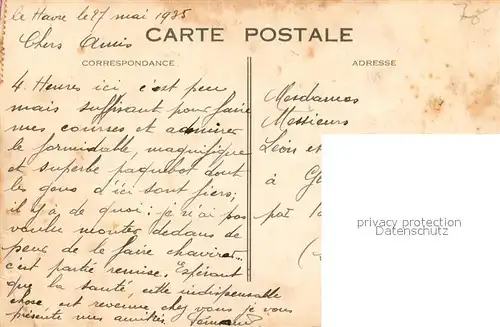 le Havre le 27 mai 1935
Chers Amis
CARTE POSTALE
CORRESPONDANCE
ADRESSE
4 Heures ici c'est peu
mais suffisant pour faire
mes courses et admirer
le formidable, magnifique
et superbe paquebot dont
les gens d'ici sont fiers;
il y a de quoi; je n'ai pas
voulu monter dedans de
peur de le faire chavirer...
c'est partie remise. Espérant
que la santé, cette indispensable
chose, est revenue chez vous je vous
présente mes amitiés
Mesdames
Messieurs
Léon et
à
par
privacy protection
Datenschutz